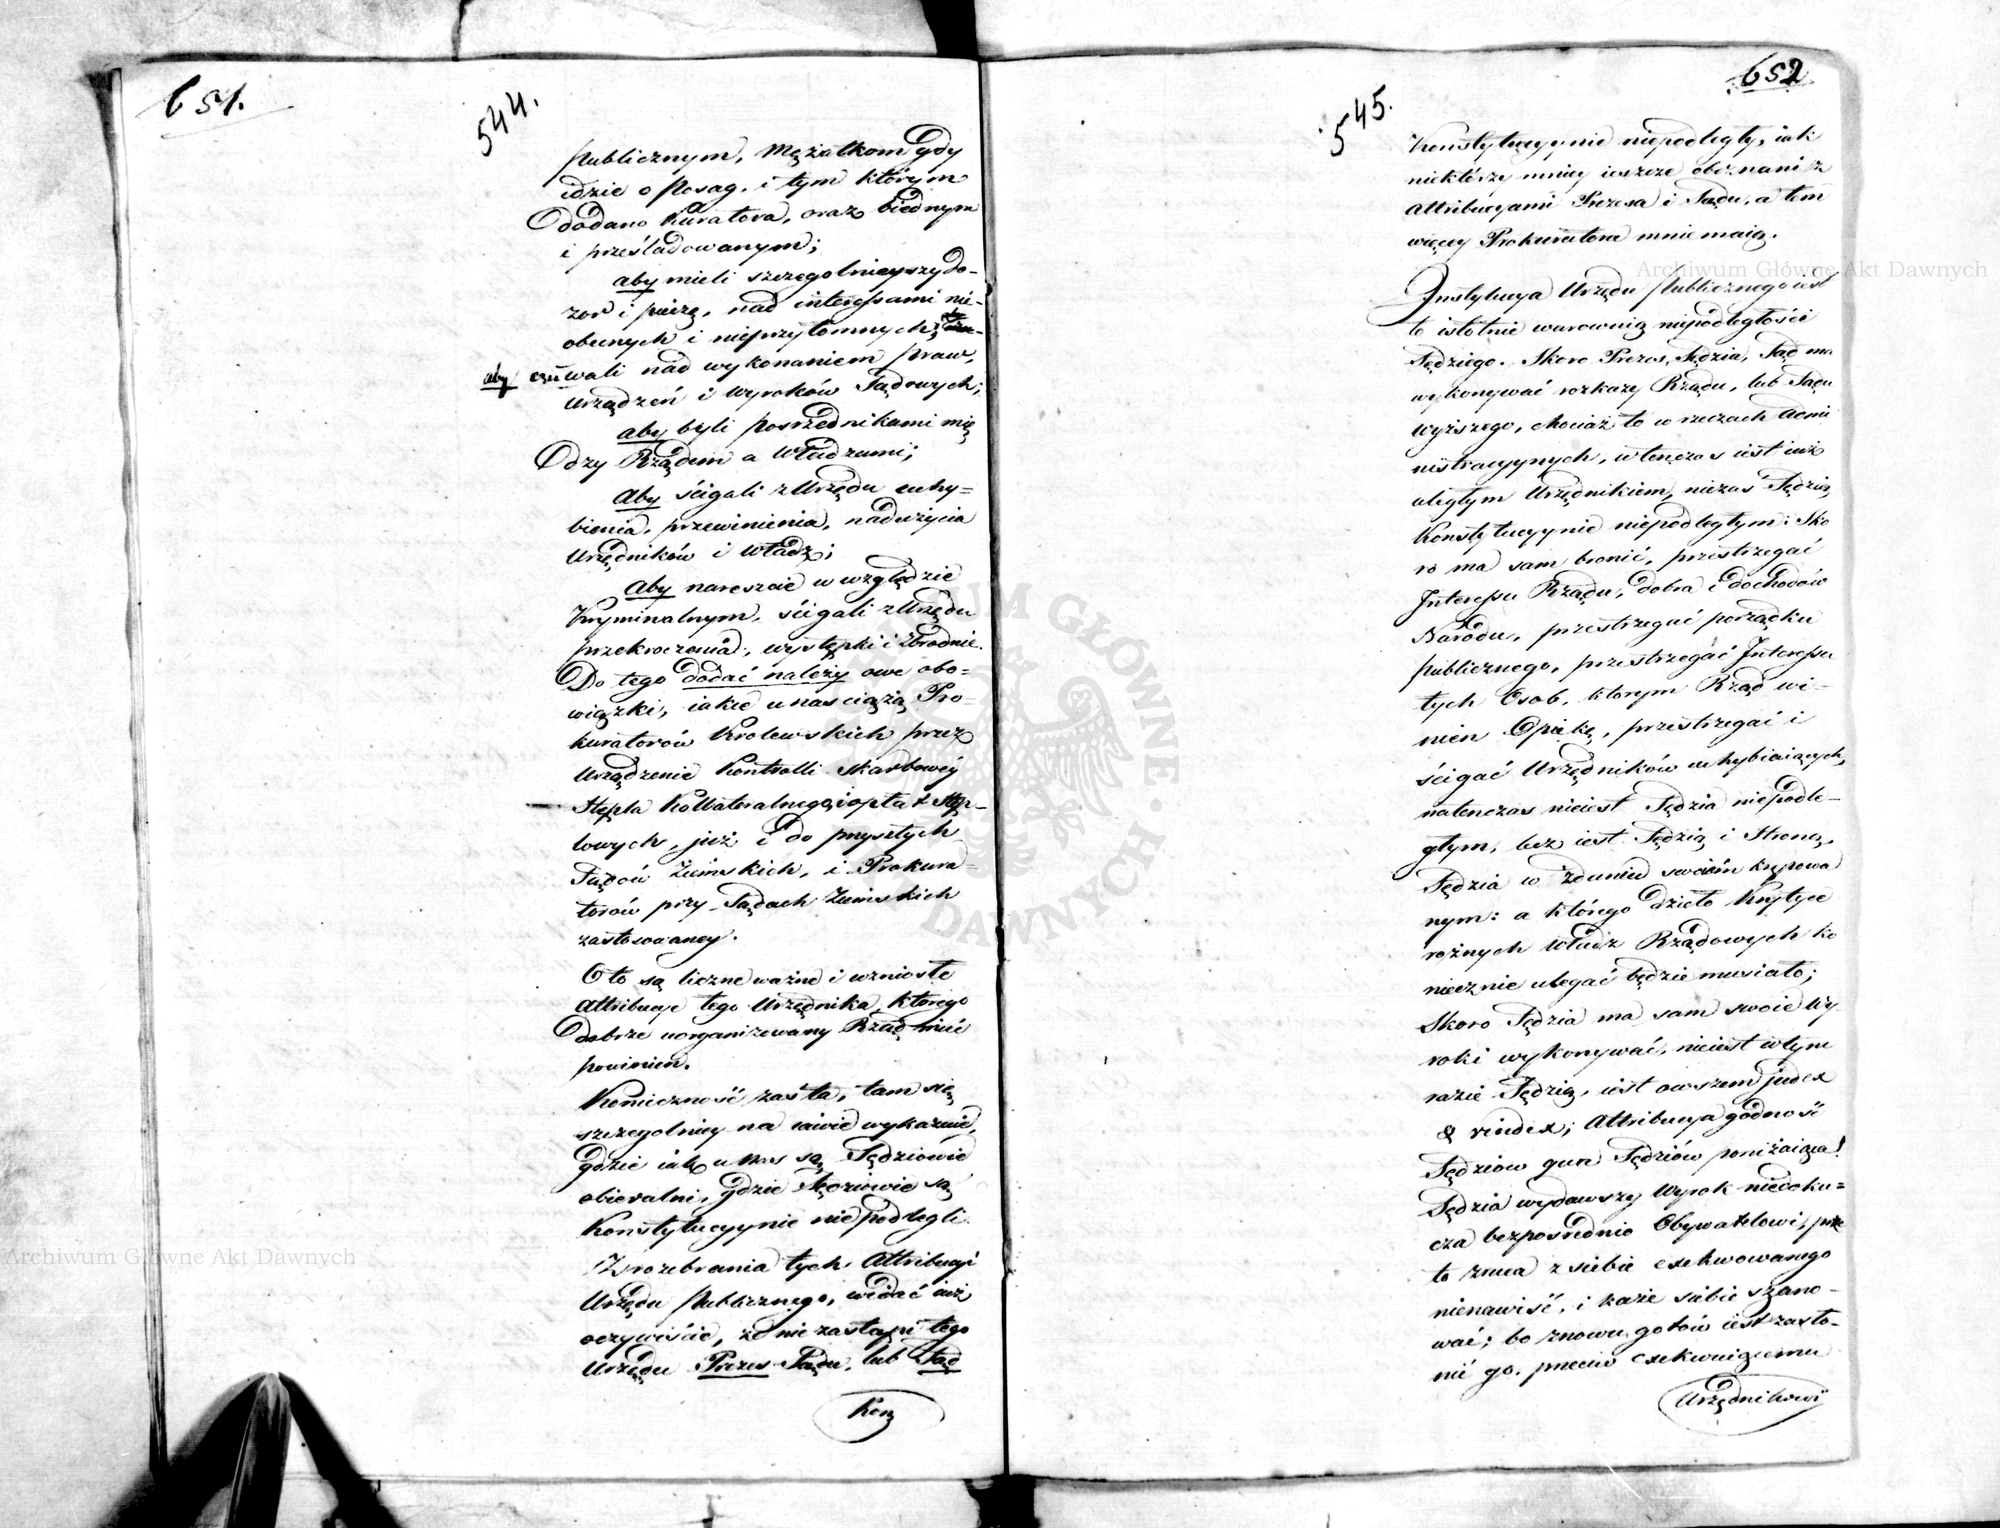 651.
544.
publicznym, Mężatkom gdy
idzie o posag, i tym którym
Dodano Kuratora, oraz biednym
i prześladowanym;
aby mieli szczegolnieyszy do-
zor i pieczę, nad interessami nie-
obecnych i nieprzytomnych;
aby czuwali nad wykonaniem praw,
urządzeń i Wyroków Sądowych;
aby byli posrzednikami mię
Odzy Rządem a Władzami;
Aby ścigali z Urzędu uchy=
bienia, przewinienia, nadużycia
Urzędników i Władz;
Aby nareszcie w względzie
Kryminalnym, ścigali z Urzędu
przekroczenia, występki i Zbrodnie.
Do tego dodać należy owe obo-
wiązki, iakie u nas ciążą Pro-
kuratorów Krolewskich przez
Urządzenie Kontrolli Skarbowéy
Stępla Kollateralnego i opłat Stęp-
lowych, już i do przyszłych
Sądów Ziemskich, i Prokura-
torów przy Sądach Ziemskich
zastosowaney.
Oto są liczne ważne i wzniosłe
Attribucye tego Urzędnika, ktorego
Dobrze uorganizowany Rząd mieć
powinien.
Konieczność zaś ta, tam się
szczegolniey na iawie wykazuie,
gdzie iak u nas są Sędziowie
obieralni, gdzie Sędziowie są
Konstytucyynie niepodlegli.
Z rozebrania tych Attribucyi
Urzędu publicznego, widać iuż
oczywiście, że nie zastąpi tego
Urzędu Prezes Sądu, lub Sąd
Kon
652
545.
Konstytucyynie niepodległy, iak
niektórzy mniey ieszcze obeznani z
attribucyami Prezesa i Sądu, a tem
więcey Prokuratora mniemaią.
Instytucya Urzędu publicznego iest
to istotnie warownią niepodległości
Sędziego. Skoro Prezes, Sędzia, Sąd ma
wykonywać rozkazy Rządu, lub Sądu
wyższego, chociaż to w rzeczach Admi
nistracyynych, wtenczas iest iuż
uległym Urzędnikiem, niezaś Sędzią
Konstytucyynie niepodległym: Sko
ro ma sam bronić, przestrzegać
Interessu Rządu, dobra i dochodów
Narodu, przestrzegać porządku
publicznego, przestrzegać Interessu
tych Osob, ktorym Rząd wi-
nien Opiekę, przestrzegać i
ścigać Urzędników uchybiaiących,
natenczas nieiest Sędzia niepodle-
głym, lecz iest Sędzią i Stroną,
Sędzia w zdaniu swoiém krępowa
nym: a którego dzieło Krytyce
rożnych Władz Rządowych ko
niecznie ulegać będzie musiało;
Skoro Sędzia ma sam swoie Wy-
roki wykonywać, nieiest w tym
razie Sędzią, iest owszem judex
& vindex; Attribucya godność
Sędziow qua Sędziów poniżaiąca!
Sędzia wydawszy Wyrok niedoku=
cza bezpośrednio Obywatelowi, prze
to zruca z siebie exekwowanego
nienawiść, i każe siebie szano-
wać; bo znowu gotów iest zasło-
nić go, przeciw exekwuiącemu
Urzędnikowi
Archiwum Główne Akt Dawnych
Archiwum Główne Akt Dawnych